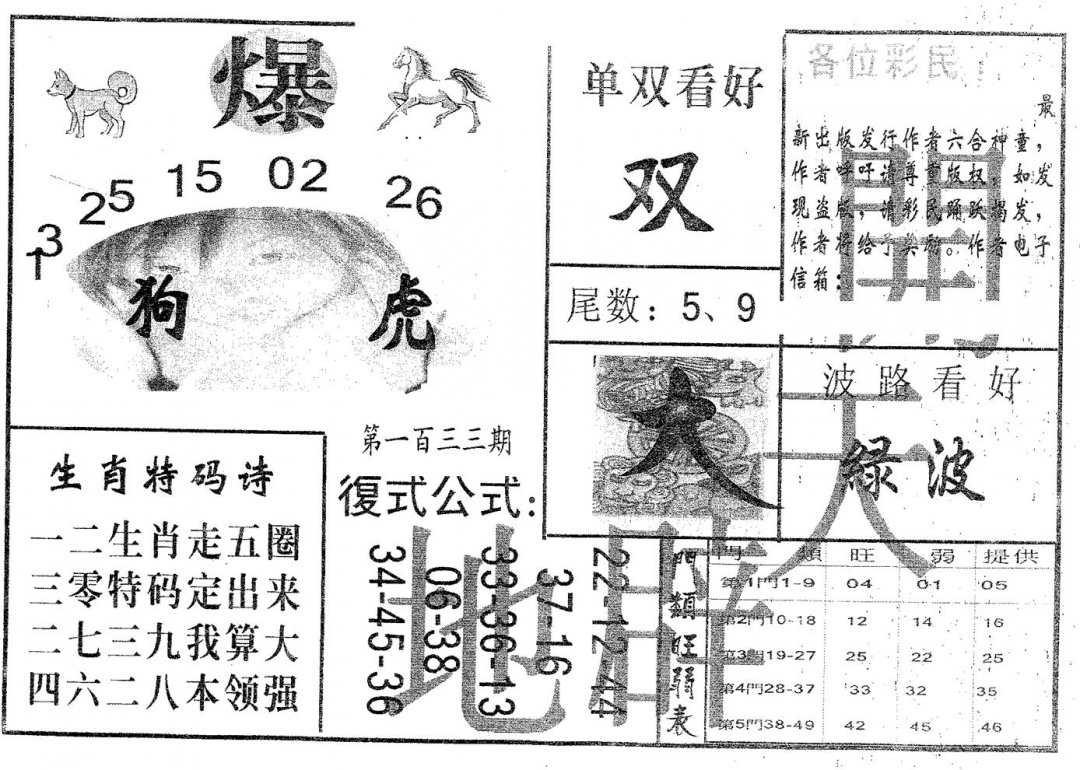 爆
25 15 02 26
13
狗 虎
单双看好
双
尾数：5、9
各位彩民：
最
新出版发行作者六合神童，
作者呼吁请尊重版权，如发
现盗版，请彩民踊跃揭发，
作者将给予奖励。作者电子
信箱：
大
波路看好
緑波
開
天
地
生肖特码诗
一二生肖走五圈
三零特码定出来
二七三九我算大
四六二八本领强
第一百三三期
復式公式：
34-45-36
06-38
33-36-13
37-16
22-12-44
門類旺弱表
門 類 旺 弱 提供
第1門1-9 04 01 05
第2門10-18 12 14 16
第3門19-27 25 22 25
第4門28-37 33 32 35
第5門38-49 42 45 46